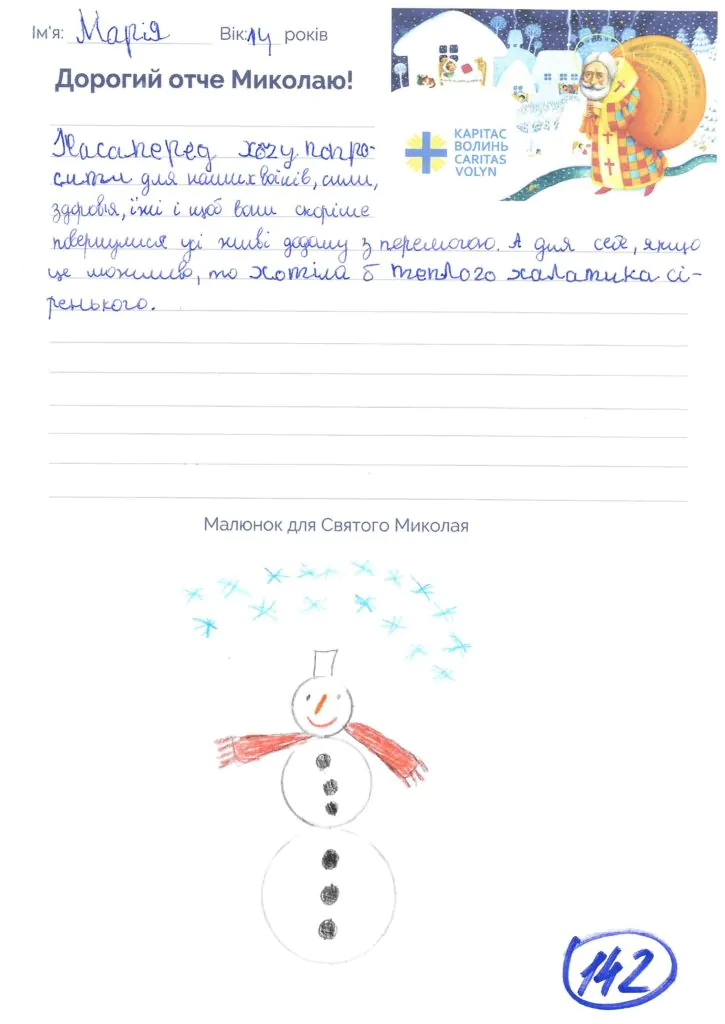 Ім'я: Марія Вік: 14 років
Дорогий отче Миколаю!
КАРІТАС
ВОЛИНЬ
CARITAS
VOLYN
Насамперед хочу попро-
сити для наших воїнів, сили,
здоров'я, їжі і щоб вони скоріше
повернулися усі живі додому з перемогою. А для себе, якщо
це можливо, то хотіла б теплого халатика сі-
ренького.
Малюнок для Святого Миколая
142